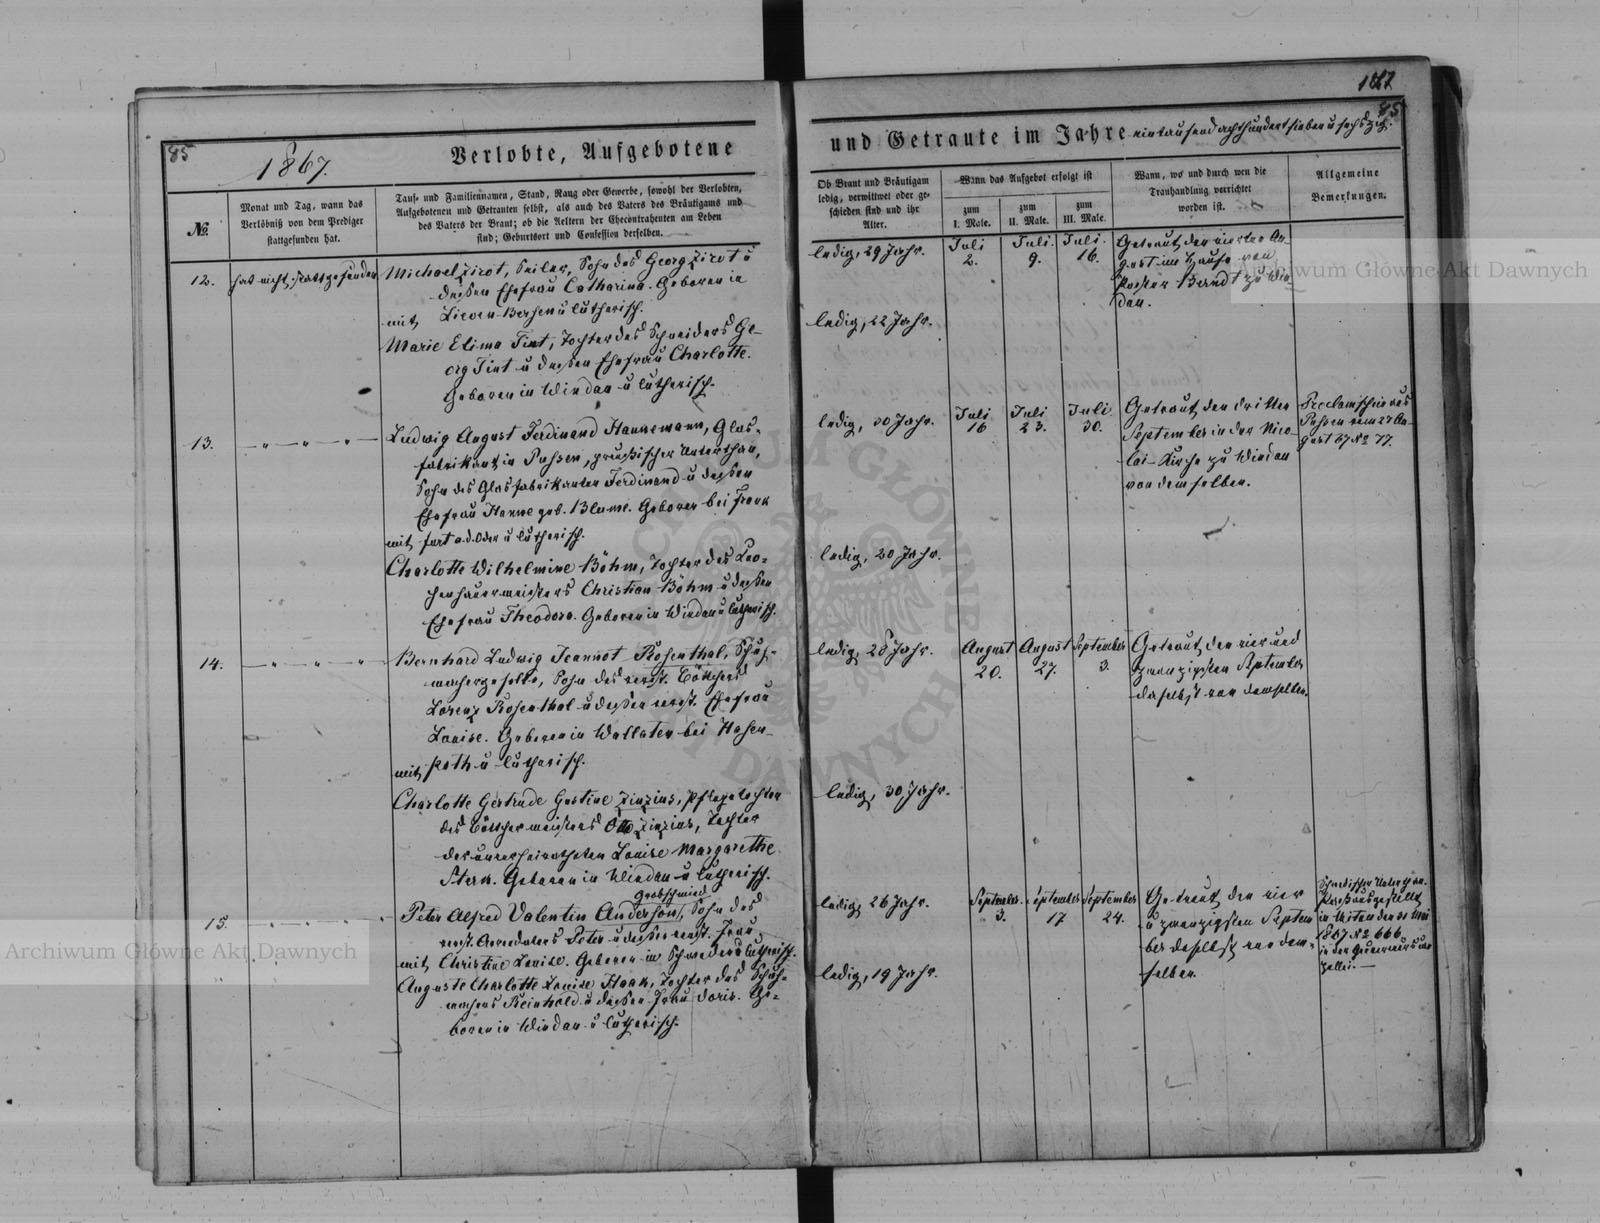 85
1867.
Verlobte, Aufgebotene
№.
Monat und Tag, wann das
Verlöbniß von dem Prediger
stattgefunden hat.
Tauf- und Familiennamen, Stand, Rang oder Gewerbe, sowohl der Verlobten,
Aufgebotenen und Getrauten selbst, als auch des Vaters des Bräutigams und
des Vaters der Braut; ob die Aeltern der Ehecontrahenten am Leben
sind; Geburtsort und Confession derselben.
12.
hat nicht stattgefunden
Michael Zirot, Seiler, Sohn des Georg Zirot u
dessen Ehefrau Catharina. Geboren in
mit Lieven-Bersen u lutherisch.
Marie Elima Tint, Tochter des Schneiders Ge-
org Tint u dessen Ehefrau Charlotte.
Geboren in Windau u lutherisch.
13.
Ludwig August Ferdinand Hannemann, Glas-
fabrikant in Pussen, preußischer Unterthan,
Sohn des Glasfabrikanten Ferdinand u dessen
Ehefrau Hanne geb. Blume. Geboren bei Frank
mit furt a.d. Oder u lutherisch.
Charlotte Wilhelmine Böhm, Tochter des
Christian Böhm u dessen
Ehefrau Theodora. Geboren in Windau u lutherisch.
14.
Bernhard Ludwig Jeannot Rosenthal, Schuh-
machergeselle, Sohn des verst. Böttchers
Lorenz Rosenthal u dessen verst. Ehefrau
Louise. Geboren in Wallaten bei Hasen-
mit poth u lutherisch.
Charlotte Gertrude Justine Zinzius, Pflegetochter
des Böttchermeisters Otto Zinzius, Tochter
der unverheiratheten Louise Margarethe
Stern. Geboren in Windau u lutherisch.
15.
Grobschmied
Peter Alfred Valentin Anderson, Sohn des
verst. Arrendators Peter u dessen verst. Frau
mit Christine Louise. Geboren in Schweden u lutherisch.
Auguste Charlotte Louise Haak, Tochter des Schuh-
machers Reinhold u dessen Frau Doris. Ge-
boren in Windau u lutherisch.
187
85
und Getraute im Jahre eintausendachthundertsieben u sechszig.
Ob Braut und Bräutigam
ledig, verwittwet oder ge-
schieden sind und ihr
Alter.
Wann das Aufgebot erfolgt ist
zum
I. Male.
zum
II. Male.
zum
III. Male.
Wann, wo und durch wen die
Trauhandlung verrichtet
worden ist.
Allgemeine
Bemerkungen.
ledig, 29 Jahr.
Juli
2.
Juli.
9.
Juli.
16.
Getraut den vierten Au-
gust im Hause von
Pastor Berndt zu Win-
dau.
ledig, 22 Jahr.
ledig, 30 Jahr.
Juli
16
Juli
23.
Juli
30.
Getraut den dritten
September in der Nico-
lai-Kirche zu Windau
von demselben.
Proclamschein aus
Pussen vom 27 Au-
gust 67 № 77.
ledig, 20 Jahr.
ledig, 28 Jahr.
August
20.
August
27.
September
3.
Getraut den vier und
zwanzigsten September
daselbst von demselben.
ledig, 30 Jahr.
ledig, 26 Jahr.
September.
3.
September
17
September
24.
Getraut den vier
u zwanzigsten Septem
ber daselbst von dem-
selben.
Schwedischer Unterthan.
Pass ausgestellt
in Mitau den 31 Mai
1867 № 666
in der Gouverneurscan
zellei.
ledig, 19 Jahr.
Archiwum Główne Akt Dawnych
Archiwum Główne Akt Dawnych
ARCHIWUM GŁÓWNE AKT DAWNYCH